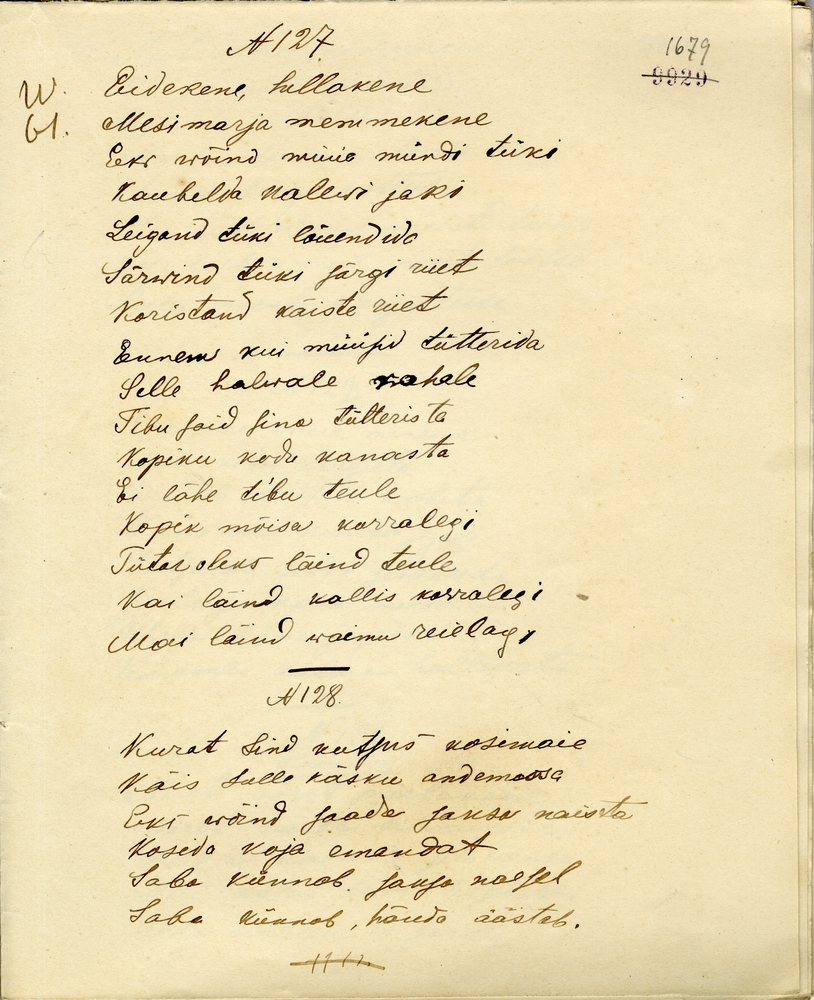 N 127
1679
9929
W. Eidekene, hellakene
61. Mesimarja memmekene
Eks wõind müüa mündi tüki
Kaubelda kalewi jaki
Leigand tüki lõuendida
Särwind tüki särgi riiet
Koristand käiste riiet
Ennem kui müüsid tütterida
Selle halwale rahale
Tibu said sina tütterista
Kopiku kodu kanasta
Ei lähe tibu teule
Kopik mõisa korralegi
Tütar oleks läind teule
Kai läind kallis korralegi
Mai läind waimu reielagi
N 128.
Kurat sind kutsus kosimaie
Käis sulle käsku andemassa
Eks wõind saada saksa naista
Kosida koja emandat
Saba künnab saksa naesel
Saba künnab, hända äästab.